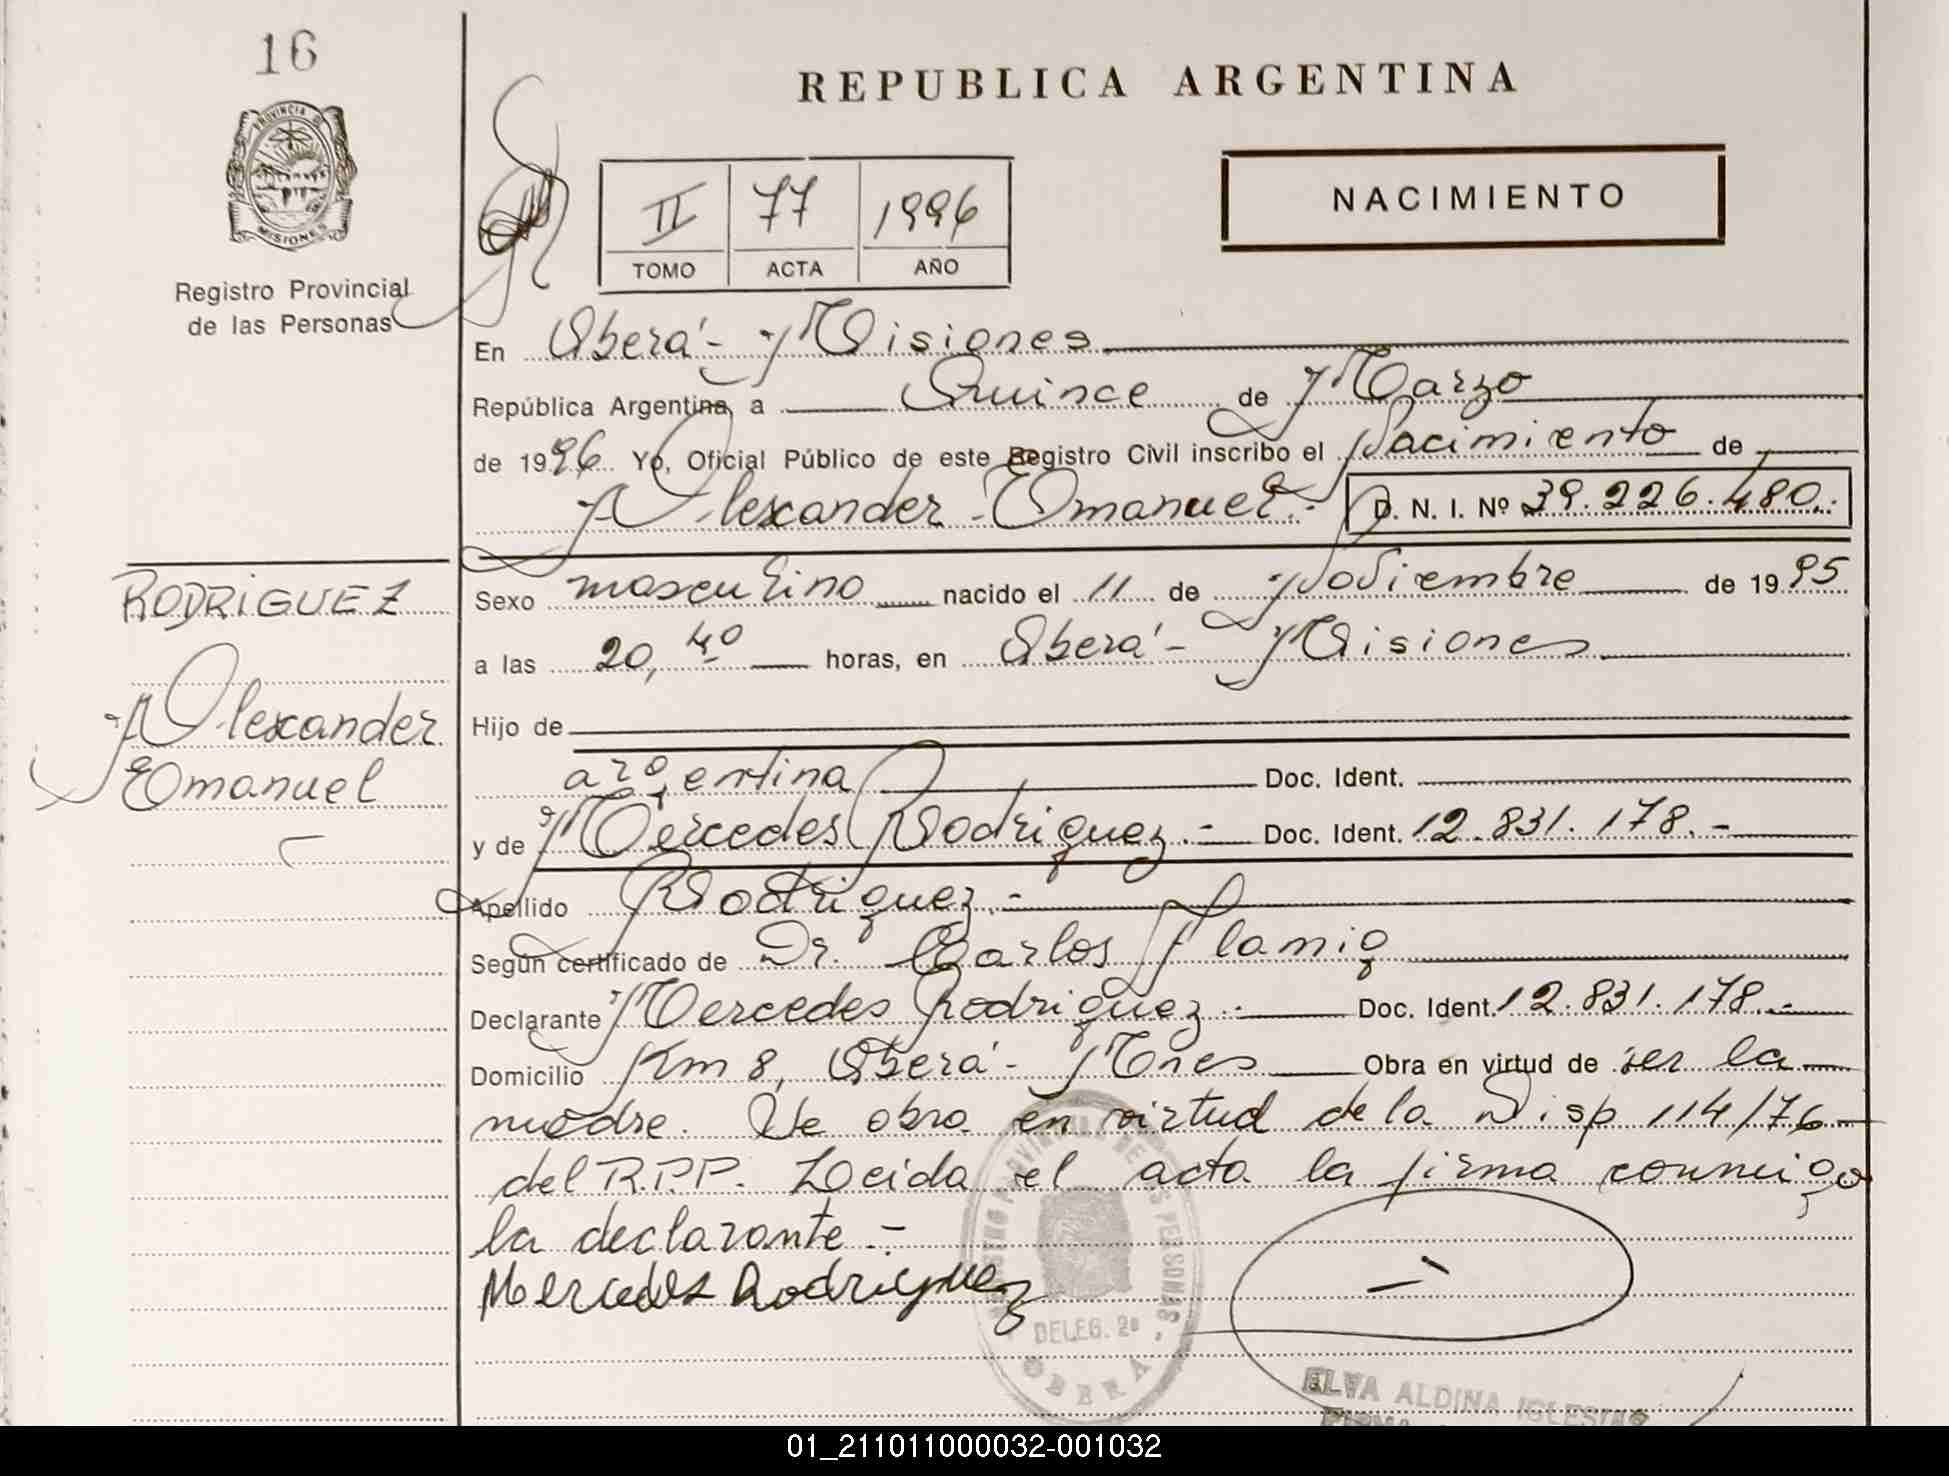 16
PROVINCIA D
MISIONES
Registro Provincial
de las Personas
REPUBLICA ARGENTINA
II 77 1996
TOMO ACTA AÑO
NACIMIENTO
En Oberá - Misiones
República Argentina, a Quince de Marzo
de 1996 Yo, Oficial Público de este Registro Civil inscribo el Nacimiento de
Alexander Emanuel.- D. N. I. Nº 39.226.480.
RODRIGUEZ
Alexander
Emanuel
Sexo masculino nacido el 11 de Noviembre de 1995
a las 20,40 horas, en Oberá - Misiones
Hijo de
argentina Doc. Ident.
y de Mercedes Rodriguez.- Doc. Ident. 12.831.178.-
Apellido Rodriguez.-
Según certificado de Dr. Carlos Flamig
Declarante Mercedes Rodriguez.- Doc. Ident. 12.831.178.-
Domicilio Km 8, Oberá - Mnes Obra en virtud de ser la
madre. Se obra en virtud de la Disp 114/76
del R.P.P. Leida el acta la firma conmigo
la declarante.-
Mercedes Rodriguez
DELEG. 2ª
OBERA
ELVA ALDINA IGLESIAS
01_211011000032-001032